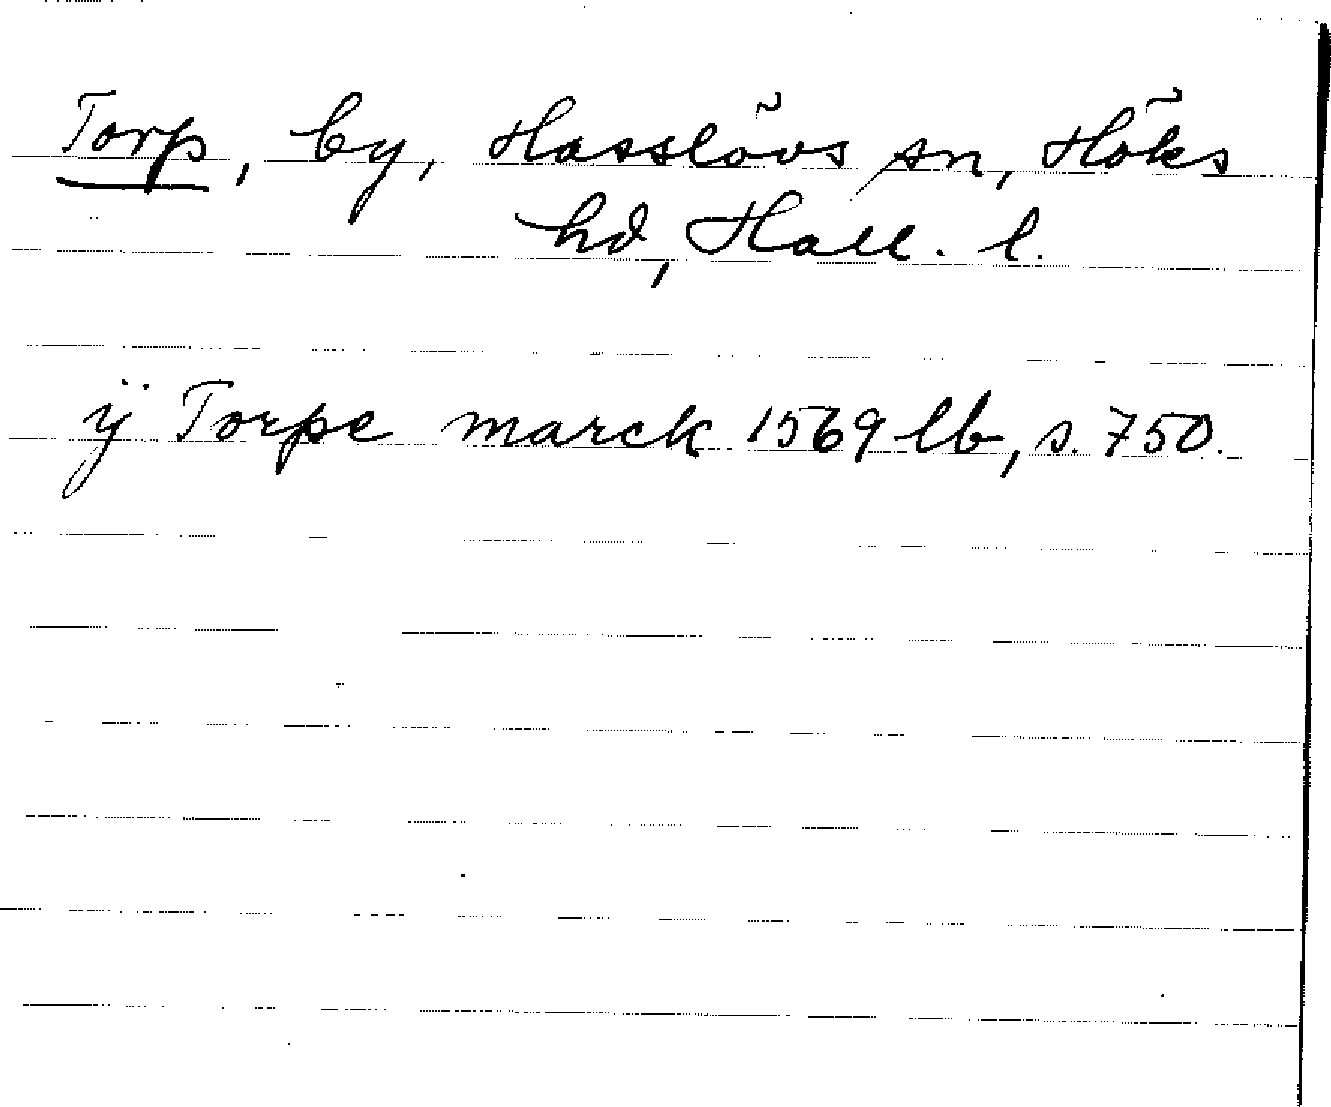 Torp, by, Hasslövs sn, Höks
hd, Hall. l.
ÿ Torpe marck 1569 lb, s. 750.